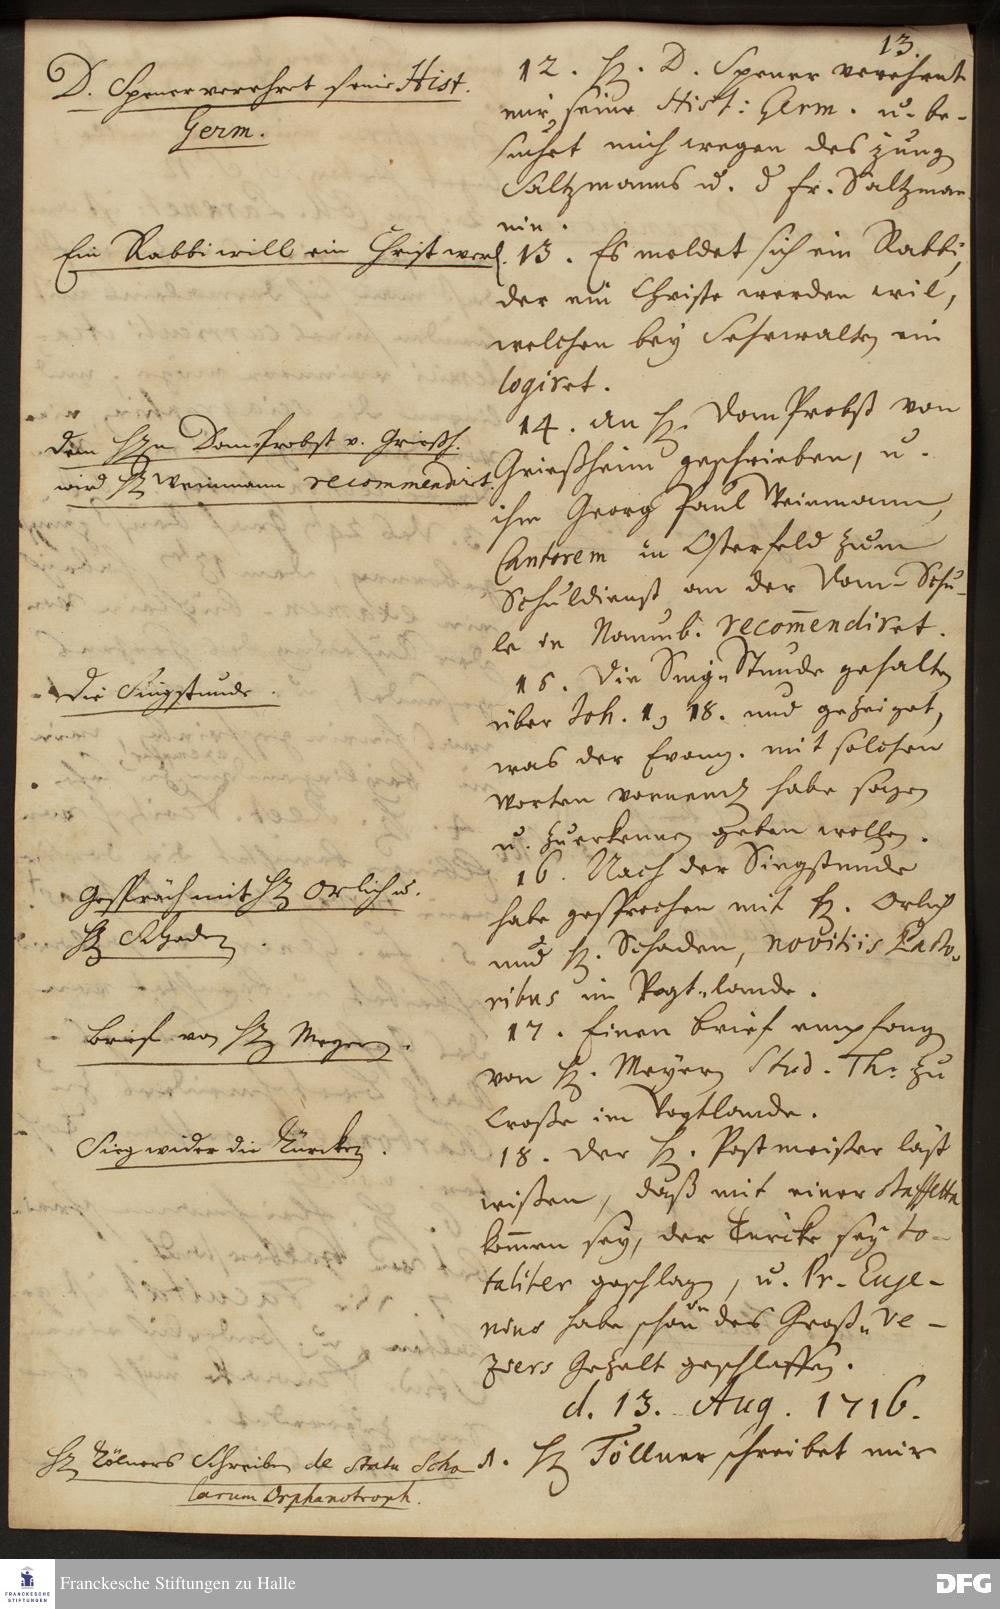 13.
D. Spener verehret seine Hist.
Germ.
12. H. D. Spener verehret
mir seine Hist: Germ. u. be-
suchet mich wegen des jung
Saltzmanns u. d Fr. Saltzman-
nin.
Ein Rabbi will ein Christ werd.
13. Es meldet sich ein Rabbi,
der ein Christe werden wil,
welchen bey Sehewalten ein
logiret.
dem Hn DomProbst v. Griesh.
wird H Weinmann recommendirt.
14. An H. DomProbst von
Grießheim geschrieben, u.
ihm Georg Paul Weinmann,
Cantorem in Osterfeld zum
Schuldienst an der Dom-Schu-
le in Naumb. recom̄endiret.
Die Singstunde.
15. Die Sing-Stunde gehalten
über Joh. 1, 18. und gezeiget,
was der Evang. mit solchen
Worten vornemlich habe sagen
u. zuerkennen geben wollen.
Gespräch mit H Orlich u.
H Schaden.
16. Nach der Singstunde
habe gesprochen mit H. Orlich
und H. Schaden, novitiis Pasto-
ribus im Vogt-lande.
Brief von H Meyern.
17. Einen brief empfang
von H. Meyern Stud. Th. zu
Croße im Vogtlande.
Sieg wider die Türcken.
18. Der H. Postmeister läst
wißen, daß mit einer Staffetta
kom̄en sey, der Türcke sey to-
taliter geschlagen, u. Pr. Euge-
nius habe schon in des Groß-Ve-
ziers Gezelt geschlaffen.
d. 13. Aug. 1716.
H Töllners Schreiben de statu Scho-
larum Orphanotroph.
1. H Töllner schreibet mir
Franckesche Stiftungen zu Halle
FRANCKESCHE
STIFTUNGEN
DFG